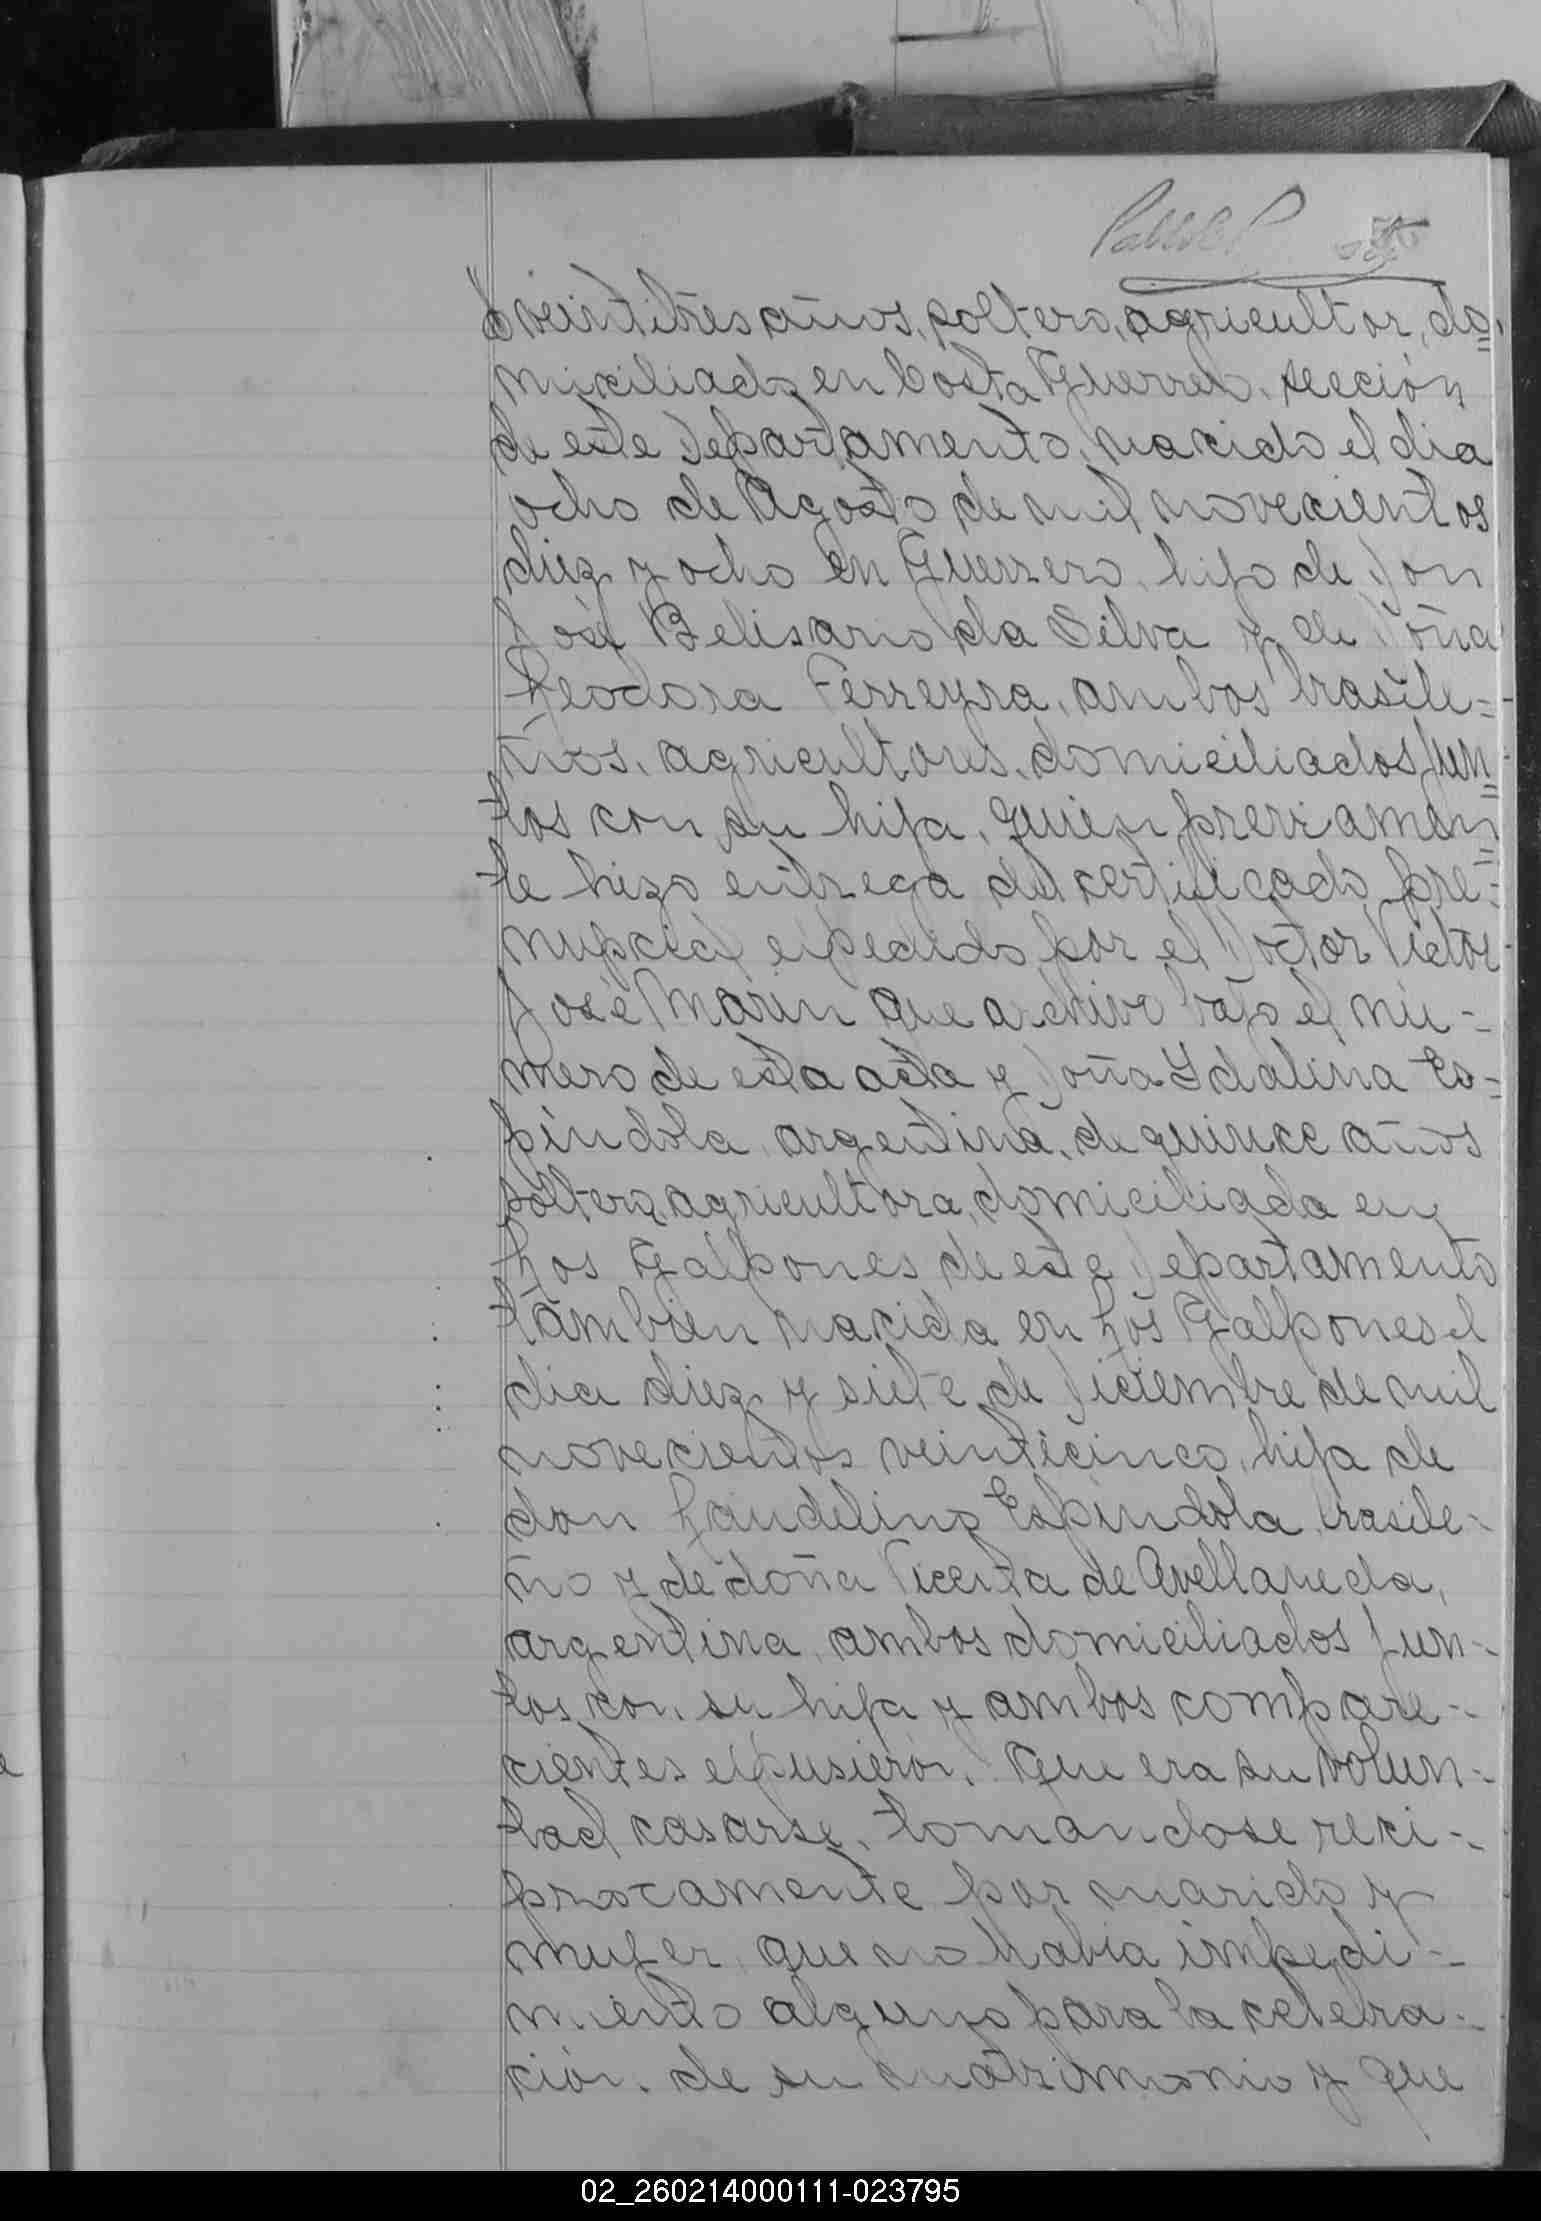 veintitres años, soltero, agricultor, do=
miciliado en Costa Guerrero, sección
de este Departamento, nacido el dia
ocho de Agosto de mil novecientos
diez y ocho en Guerrero, hijo de Don
José Belisario da Silva y de Doña
Teodora Ferreyra, ambos brasile=
ños, agricultores, domiciliados jun=
tos con su hijo, quien previamen=
te hizo entrega del certificado pre=
nupcial expedido por el Doctor Victor
José Marin que archivo bajo el nú-
mero de esta acta y Doña Ydalina Es=
pindola, argentina, de quince años
soltera, agricultora, domiciliada en
Los Galpones de este Departamento
tambien nacida en Los Galpones el
dia diez y siete de Diciembre de mil
novecientos veinticinco, hija de
don Laudelino Espindola brasile-
ño y de doña Vicenta de Avellaneda,
argentina, ambos domiciliados jun-
tos con su hija y ambos compare-
cientes expusieron: Que era su volun-
tad casarse, tomandose reci-
procamente por marido y
mujer, que no habia impedi-
mento alguno para la celebra-
ción de su matrimonio y que
02_260214000111-023795